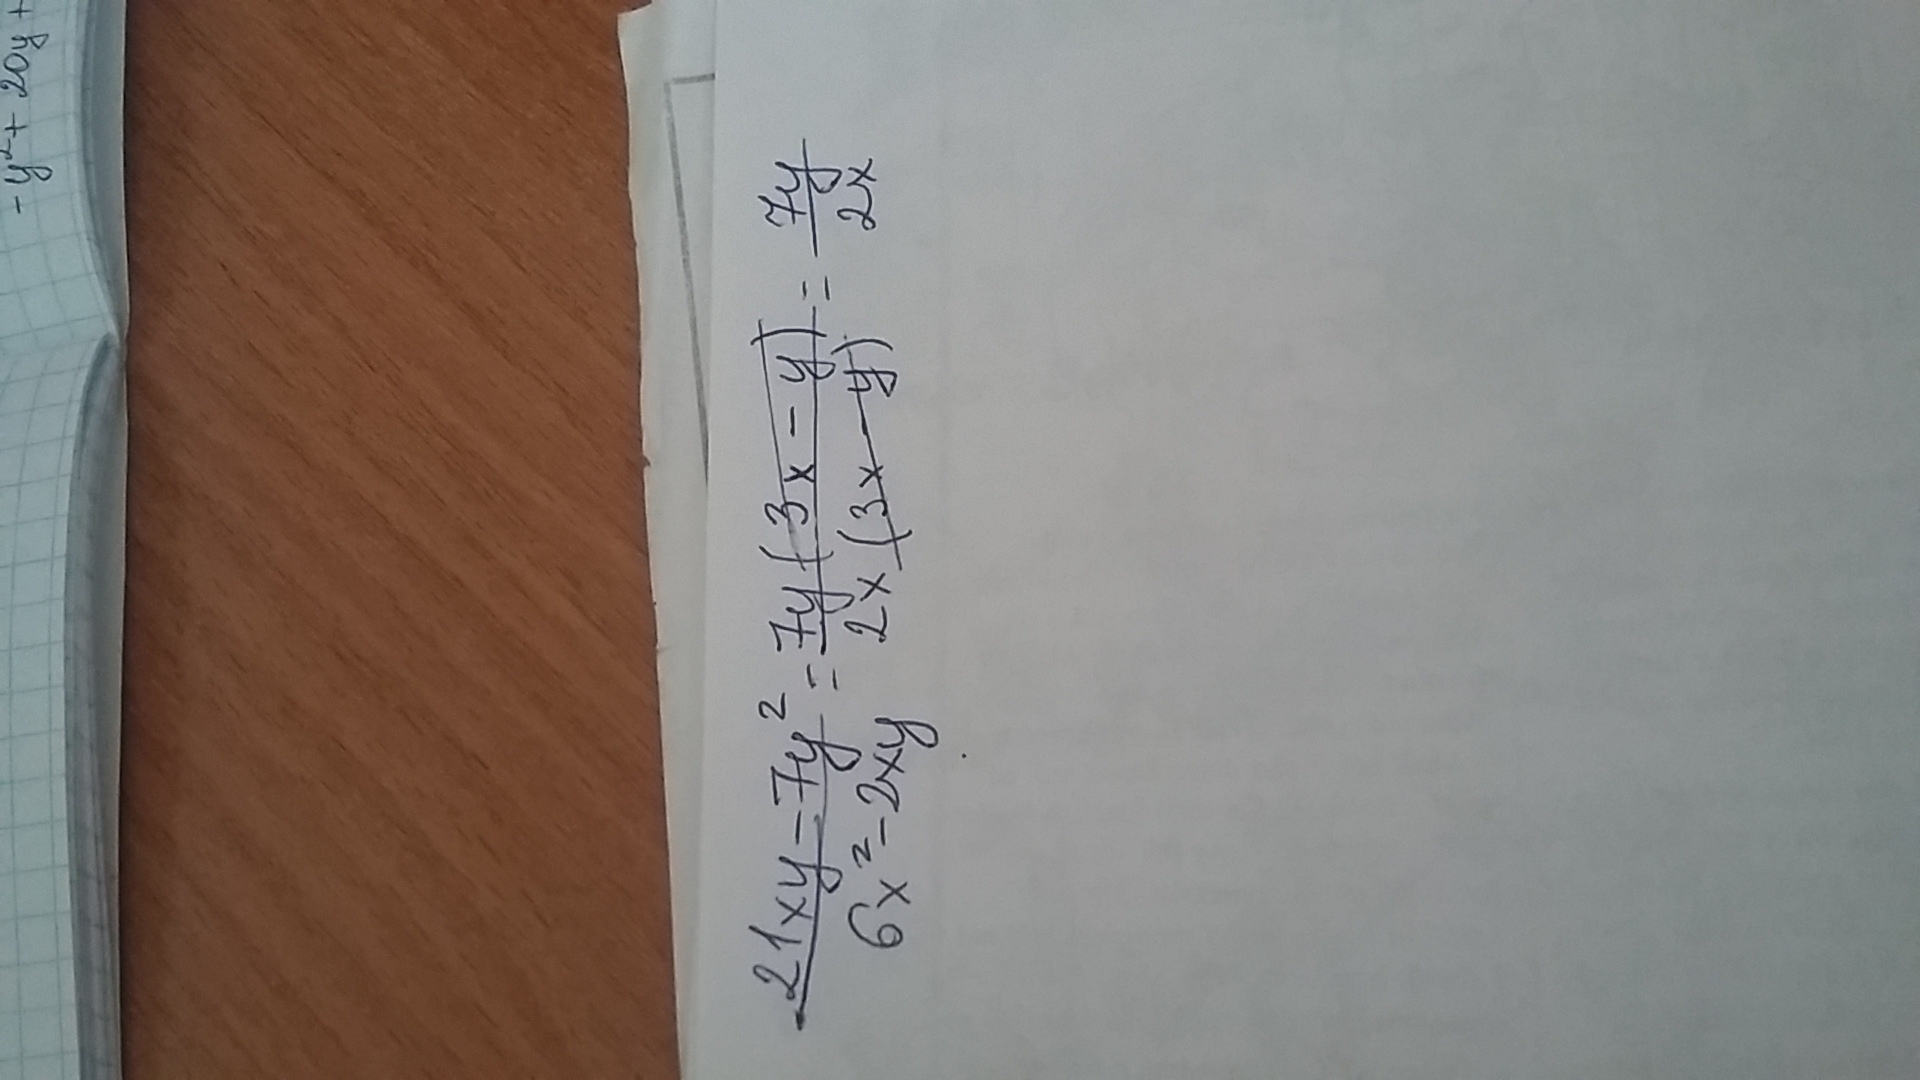 -y²+20y+
(21xy-7y²)/(6x²-2xy) = (7y(3x-y))/(2x(3x-y)) = 7y/2x